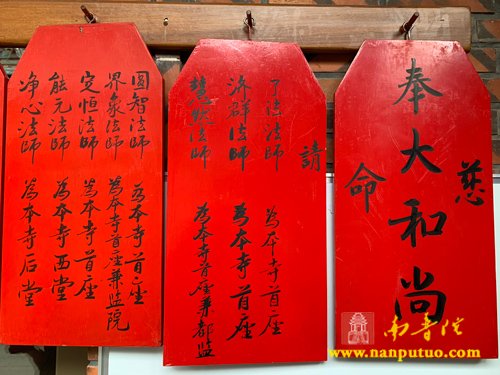 慈
奉大和尚
命
請
了法法師 為本寺首座
济群法師 為本寺首座
法師 為本寺首座兼都監
圓智法師 為本寺首座
界象法師 為本寺首座兼监院
定恒法師 為本寺首座
能元法師 為本寺西堂
净心法師 為本寺后堂
南普陀
www.nanputuo.com